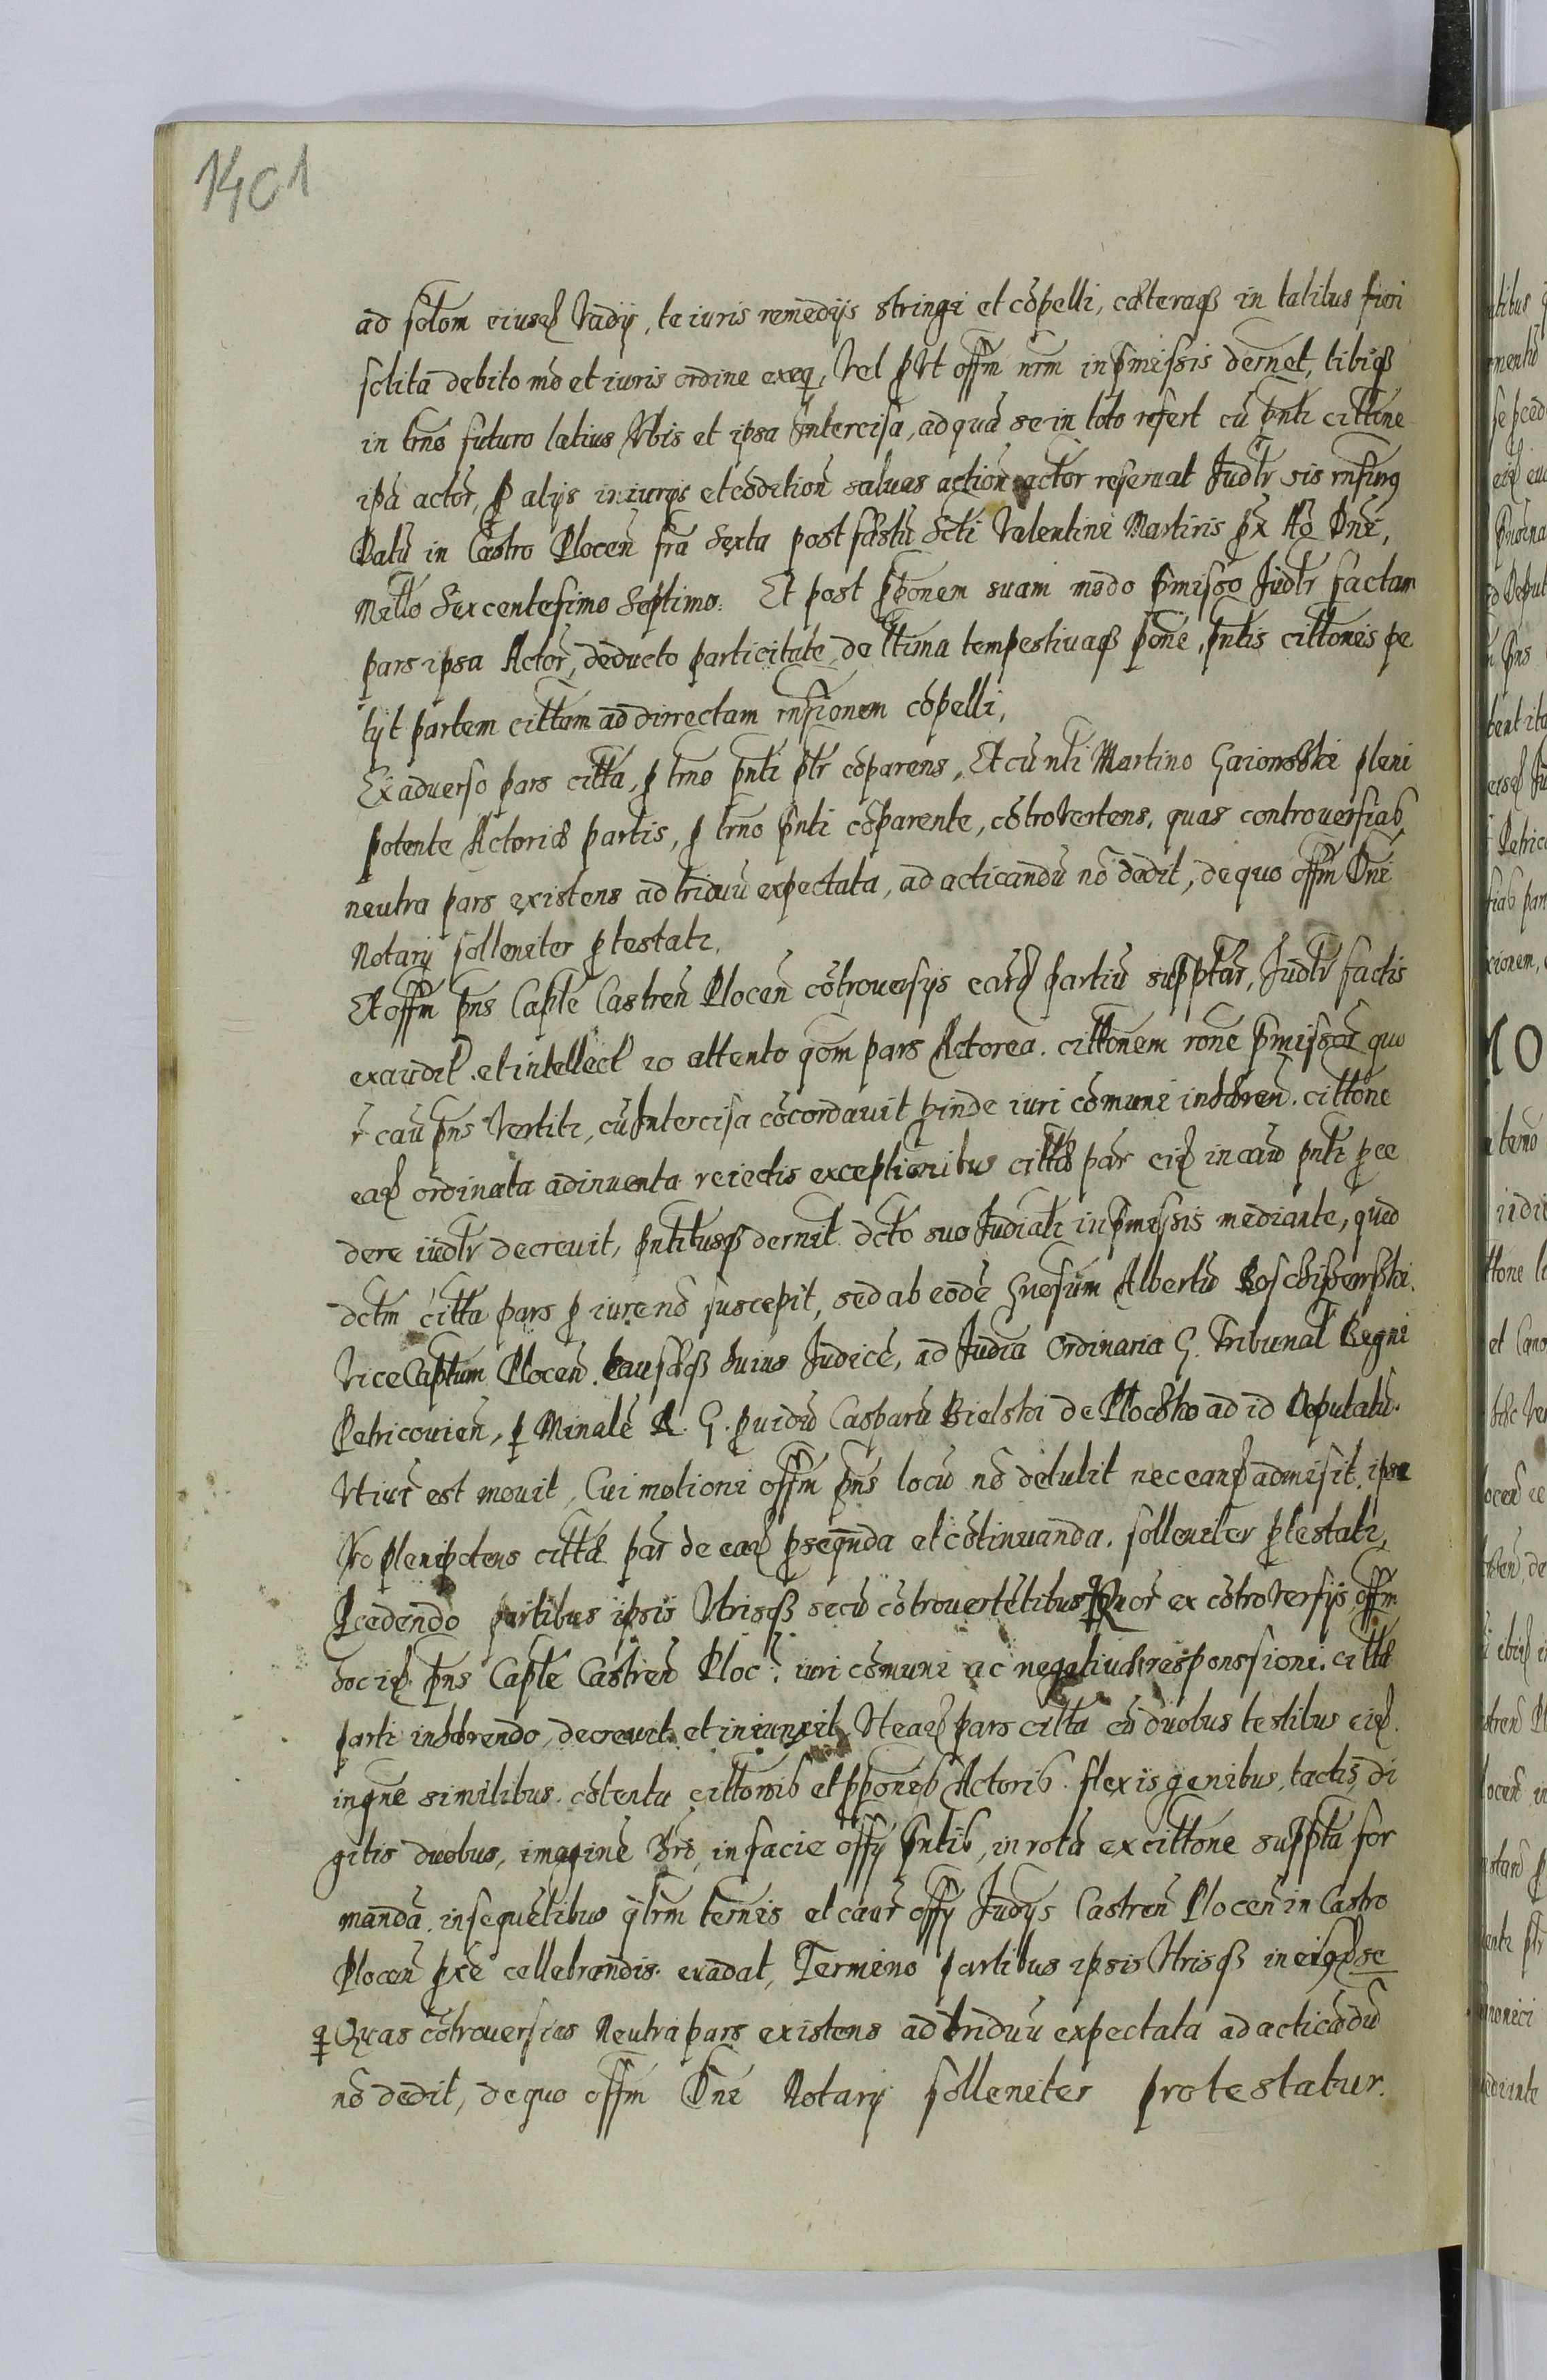 1401
ad solom eiusd Vadij, te iuris remedijs stringi et cõpelli, cæteraqȝ in talibus fieri
solita debito mõ et iuris ordine exeq, Vel ꝓVt offm nrm in p̃missis dernet, tibiqȝ
in trño futuro latius Vbis et ipsa Intercisa, ad quã se in toto refert cũ pñti cittõne
ipã actor, ꝓ alijs iniurijs et cõditioñ saluas actioñ actor reseruat Judlr sis rñsurꝯ
Datũ in Castro Ploceñ fra Sexta post fæstũ Scti Valentini Martiris px Aõ Dnĩ,
Millo Sexcentesimo Septimo. Et post ꝓp̃onem suam modo p̃misso Judlr factam
pars ipsa Actor, deducto particitate, de ltima tempestiuaqȝ põne, pñtis cittõnis pe
tÿt partem cittam ad dirrectam rñsionem cõpelli,
Ex aduerso pars citta, ꝑ trño pñti ptr cõparens, Et cũ nli Martino Gaionski pleni
potente Actoriæ partis, ꝑ trño pñti cõparente, cõtroVertens, quas controuersias
neutra pars existens ad triduũ expectata, ad acticandũ nõ dedit, de quo offm Dnĩ
Notarij solleniter ꝓtestatr,
Et offm pñs Capte Castreñ Ploceñ cõtrouersijs earũd partiũ supptar, Judlr factis
exaudit. et intellect eo attento qõm pars Actorea. cittõnem rõne p̃missor quo
r cau pñs Vertitr, cũ Intercisa cõcordauit hinde iuri cõmuni inhæreñ. cittõne
ead ordinata adinuenta reiectis exceptionibus cittæ par eid in cau pñti ꝓce
dere iudlr decreuit, pñtibusqȝ dernit dcto suo Judiali in p̃missis mediante, quod
dctm citta pars ꝓ iure nõ suscepit, sed ab eodẽ Gnesum Albertũ Koschiszewski.
ViceCaptum Ploceñ. causæqȝ huius Judicẽ, ad Judia Ordinaria G. Tribunal Regni
Petricouieñ, ꝑ Minale R. G. ꝓuidũ Casparũ Bielski de Plocsko ad id Deputatũ.
Vtiur est mouit, Cui motioni offm pñs locũ nõ detulit nec eand admisit, ipse
Vro plenipotens cittæ par de ead ꝓseqũnda et cõtinuanda. solleniter ꝓtestatr,
Ꝓcedendo partibus ipsis Vtrisqȝ secũ cõtrouertẽtibus Quor ex cõtroVersijs offm
hoc id pñs Capte Castreñ Ploc: iuri cõmuni ac negatiuæ responssioni. cittæ
parti inhærendo, decreuit et iniunxit Vt ead pars citta cũ duobus testibus eid.
in gñe similibus. cõtentu cittonis et ꝓpõnis Actoris. flexis genibus, tactis di
gitis duobus, imaginẽ in facie offij pñtis, in rota ex cittõne suppta for
manda. in sequẽtibus qlrm ternis et caur offij Judijs Castreñ Ploceñ in Castro
Ploceñ pxe cellebrandis. euadat, Termino partibus ipsis Vtrisqȝ in eisd se
Quas cõtrouersias Neutra pars existens ad triduũ expectata ad acticãdũ
nõ dedit, de quo offm Dnĩ Notarij solleniter protestatur.